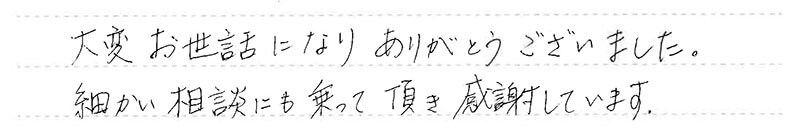 大変お世話になりありがとうございました。
細かい相談にも乗って頂き感謝しています.